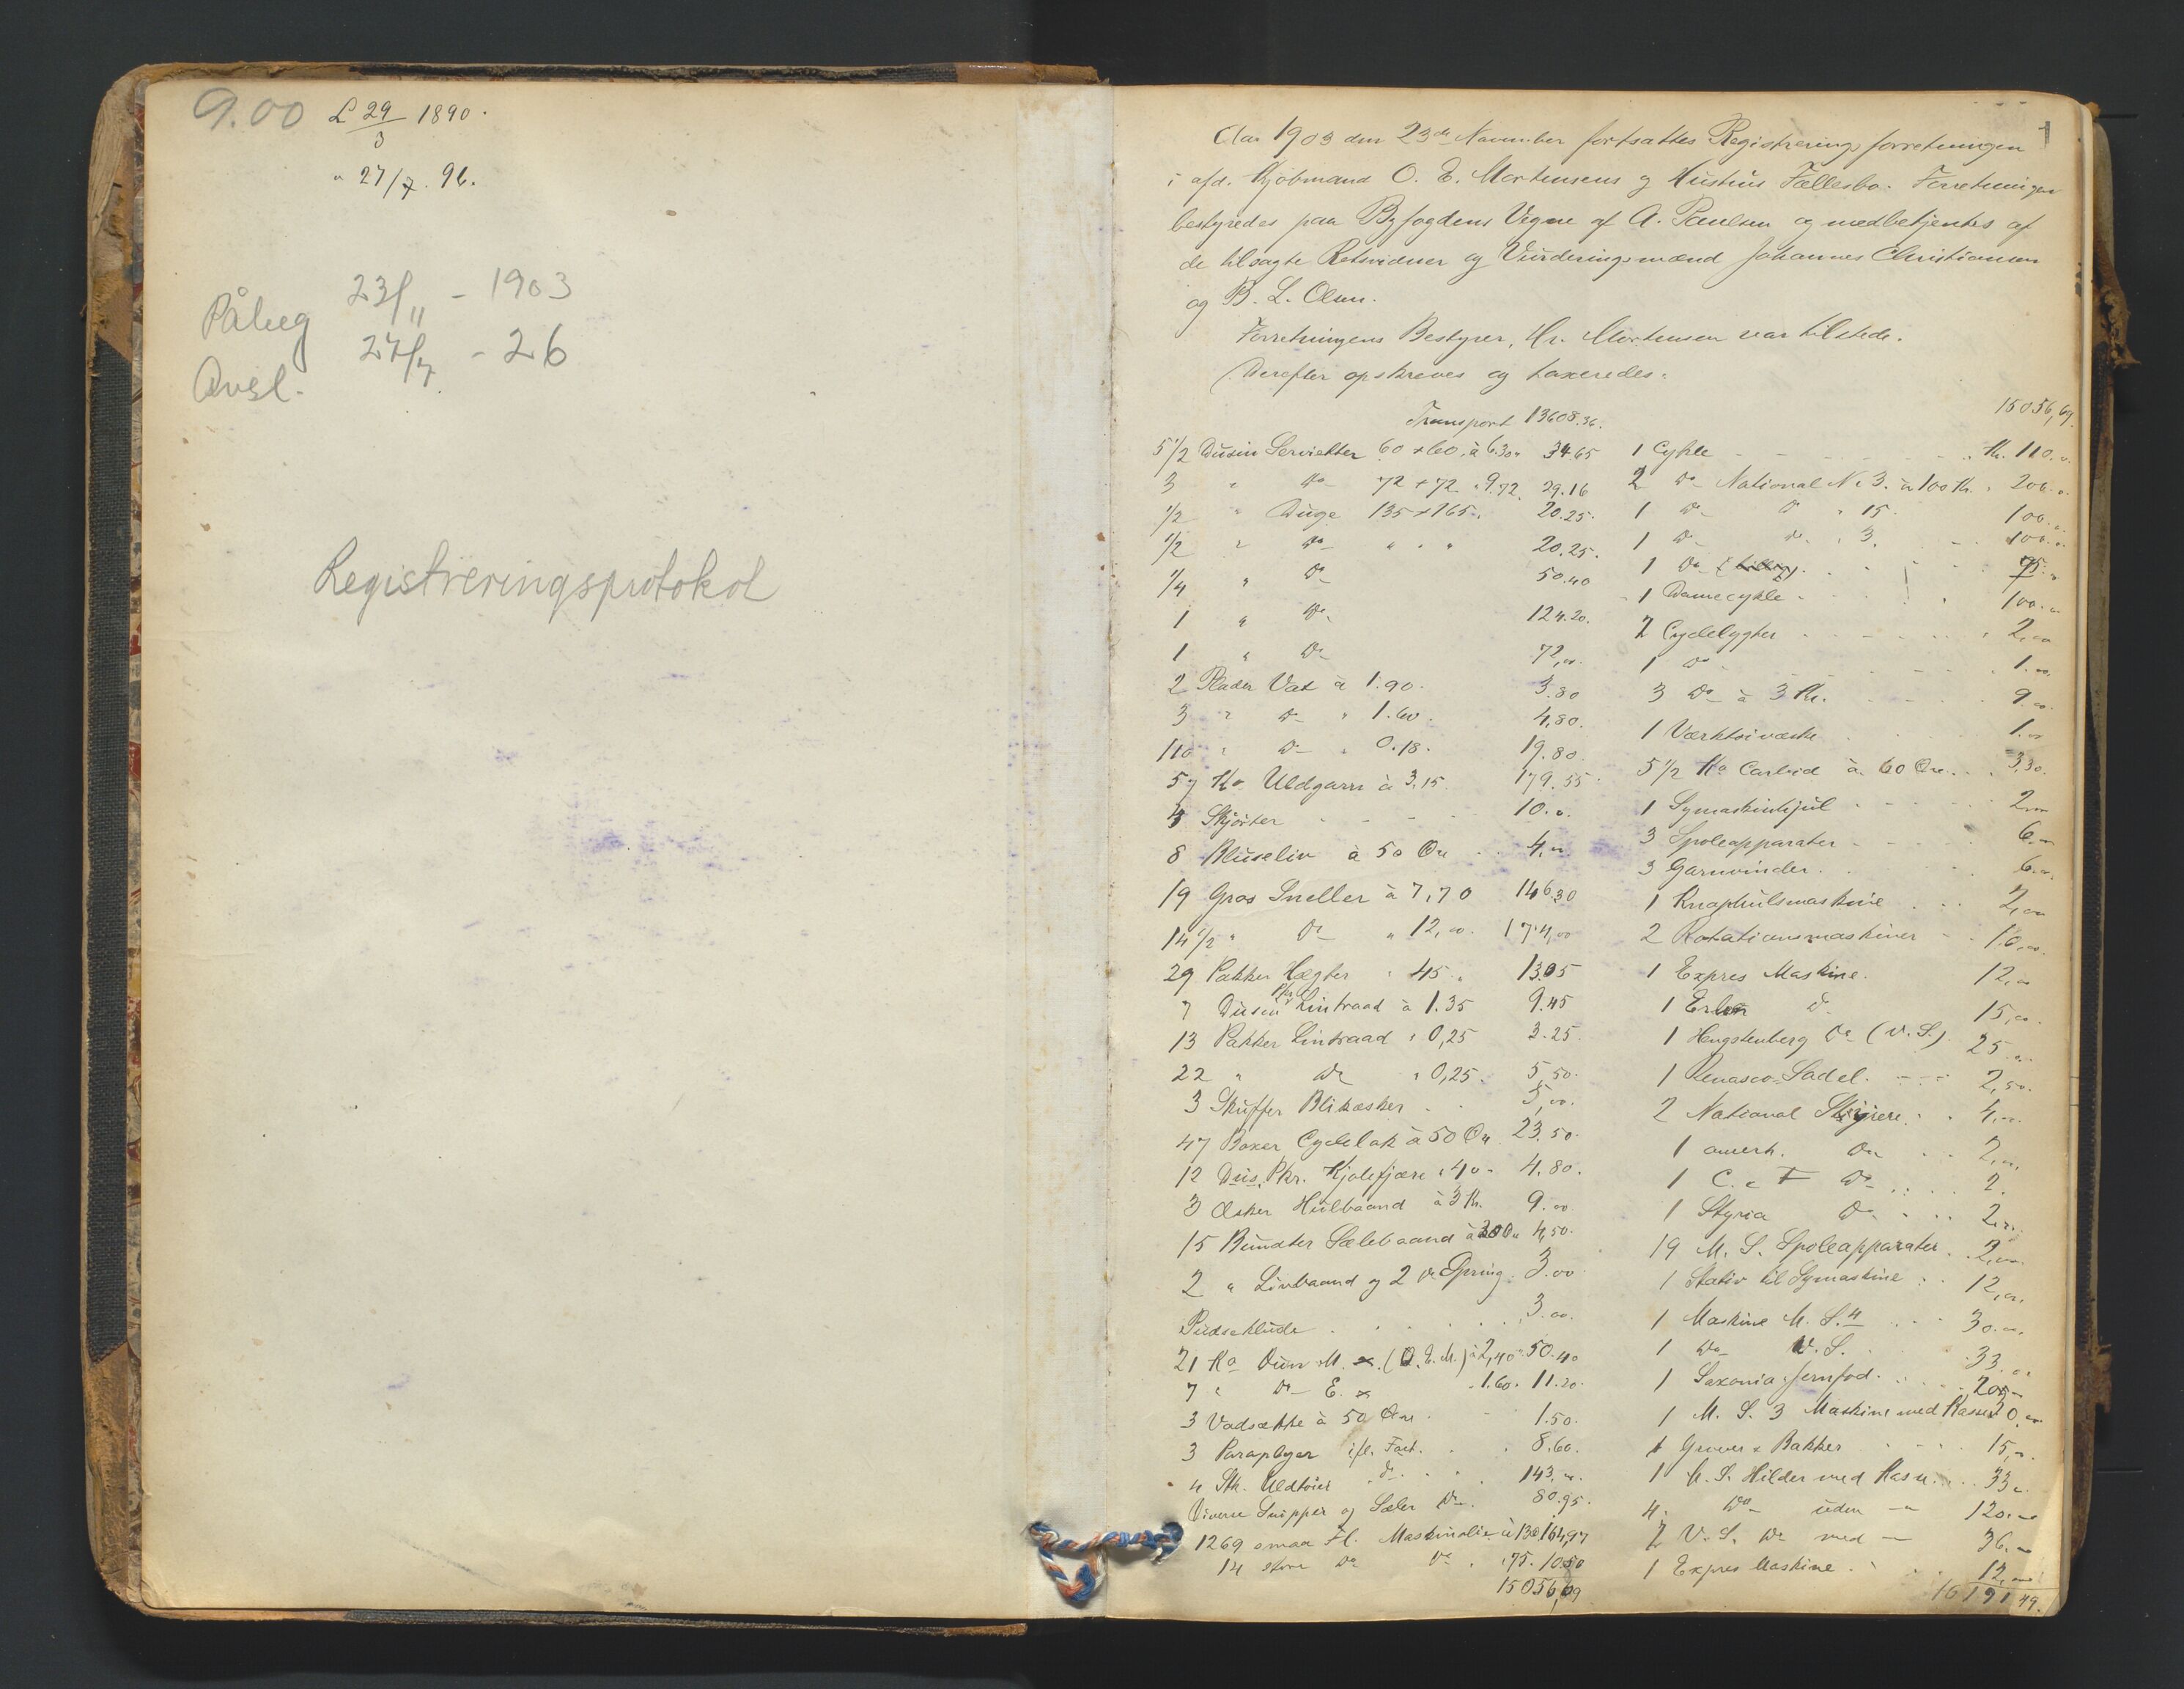 9.00 L 29/3 1890.
" 27/7. 96.
Påbeg 23/11 - 1903
Avsl. 27/7 - 26
Registreringsprotokol
1
Aar 1903 den 23de November fortsattes Registreringsforretningen
i afd. Kjøbmand O. E. Mortensens og Hustrus Fællesbo. Forretningen
bestyredes paa Byfogdens Vegne af A. Paulsen og medbetjentes af
de tilsagte Retsvidner og Vurderingsmænd Johannes Christiansen
og B. L. Olsen.
Forretningens Bestyrer, Hr. Mortensen var tilstede.
Derefter opskreves og taxeredes:
Transport 13608.36.
5 1/2 Dusin Servietter 60 x 60. à 6.30 " 34.65
3 " Do 72 + 72 " 9.72. 29.16
1/2 " Duge 135 x 165. 20.25.
1/2 " Do " " " 20.25.
1/4 " Do 50.40
1 " Do 124.20.
1 " Do 72,00.
2 Plader Vat à 1.90. 3.80
3 " Do " 1.60. 4,80.
110 " Do " 0.18. 19.80.
57 Ko Uldgarn à 3.15. 179.55.
4 Skjørter 10.0.
8 Bluseliv à 50 Øre 4,00.
19 Gros Sneller à 7,70 146.30
14 1/2 " Do " 12,00. 174,00
29 Pakker Hægter " 45 " 13.05
7 Dusin Pkr Lintraad à 1.35 9.45
13 Pakker Lintraad " 0,25 3.25.
22 " Do " 0,25. 5,50.
3 Skuffer Blikæsker 5,00.
47 Boxer Cyclelak à 50 Øre 23.50.
12 Dus. Pkr. Kjolefjære " 40 " 4.80.
3 Æsker Hulbaand à 3 Kr. 9.00
15 Bundter Sælebaand à 30 Øre 4,50.
2 " Livbaand og 2 Do Spring. 3.00
Pudseklude 3.00.
21 Ko Dun M. x. (O. E. M.) à 2,40 " 50.40
7 " Do E. x " 1.60. 11.20.
3 Vadsække à 50 Øre 1.50.
3 Paraplyer ifl. Fact. 8.60.
4 Stk. Uldtøier Do 143.00.
Diverse Snipper og Sæler Do. 80.95.
1269 smaa Fl. Maskinolie à 13 Ø 164,97
14 store Do Do " 75. 10.50
15056,69
15056,69.
1 Cykle Kr. 110.00
2 Do National No 3. à 100 Kr. " 200.00
1 Do Do " 15. 100.00
1 Do Do " 3. 100.00
1 Do 95.00
1 Damecykle 100.00
2 Cyclelygter 2,00
1 Do 1.00
3 Do à 3 Kr. 9.00
1 Værktøivæske 1.00
5 1/2 Ko Carbid à 60 Øre 3,30.
1 Symaskinhjul 2,00
3 Spoleapparater 6.00
3 Garnvinder 6.00
1 Knaphulsmaskine 2,00
2 Rotationsmaskiner 10,00.
1 Expres Maskine. 12,00
1 Do 15,00.
1 Hengstenberg Do (V. S.) 25.00
1 Sadel. 2,50.
2 National Styrere 4,00.
1 amerk. Do 2,00.
1 C. & F Do 2.
1 Styria Do 2,00.
19 M. S. Spoleapparater 2,00.
1 Stativ til Symaskine 12,00.
1 Maskine M. S. 4 30.00.
1 Do V. S. 33.00
1 Saxonia Jernfod. 20,00
1 M. S. 3 Maskine med Kasse 30,00
1 Grover & Bakker 15,00.
1 M. S. Hilder med Kasse 33.00
4. Do uden " 120.00
2 V. S. Do med " 36.00
1 Expres Maskine 12,00
16191 49.